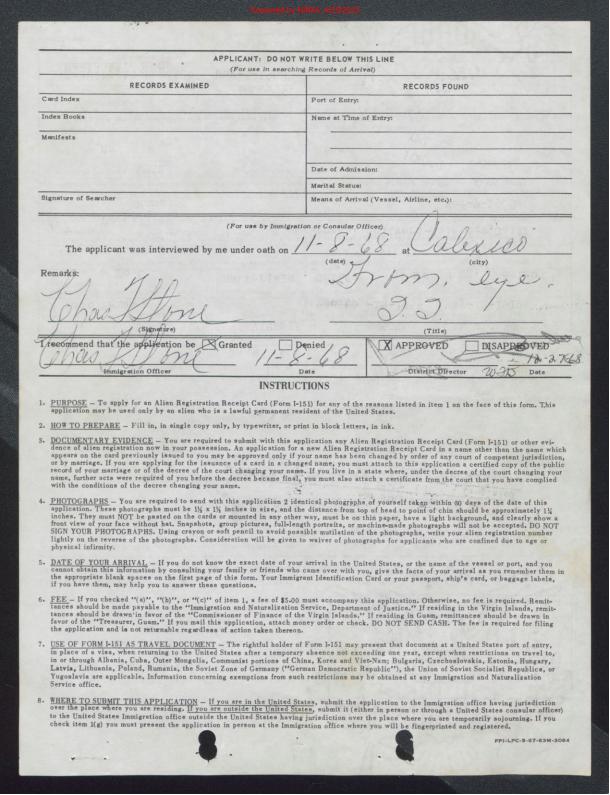 APPLICANT: DO NOT WRITE BELOW THIS LINE
(For use in searching Records of Arrival)
RECORDS EXAMINED
RECORDS FOUND
Card Index
Port of Entry:
Index Books
Name at Time of Entry:
Manifests
Date of Admission:
Marital Status:
Signature of Searcher
Means of Arrival (Vessel, Airline, etc.):
(For use by Immigration or Consular Officer)
The applicant was interviewed by me under oath on 11-8-68 at Calexico
(date) (city)
Remarks:
Chas Stone
(Signature)
(Title)
I recommend that the application be X Granted Denied
X APPROVED DISAPPROVED
Chas Stone 11-8-68
Immigration Officer Date
District Director Date
INSTRUCTIONS
1. PURPOSE – To apply for an Alien Registration Receipt Card (Form I-151) for any of the reasons listed in item 1 on the face of this form. This
application may be used only by an alien who is a lawful permanent resident of the United States.
2. HOW TO PREPARE – Fill in, in single copy only, by typewriter, or print in block letters, in ink.
3. DOCUMENTARY EVIDENCE – You are required to submit with this application any Alien Registration Receipt Card (Form I-151) or other evi-
dence of alien registration now in your possession. An application for a new Alien Registration Receipt Card in a name other than the name which
appears on the card previously issued to you may be approved only if your name has been changed by order of any court of competent jurisdiction,
or by marriage. If you are applying for the issuance of a card in a changed name, you must attach to this application a certified copy of the public
record of your marriage or of the decree of the court changing your name. If you live in a state where, under the decree of the court changing your
name, further acts were required of you before the decree became final, you must also attach a certificate from the court that you have complied
with the conditions of the decree changing your name.
4. PHOTOGRAPHS – You are required to send with this application 2 identical photographs of yourself taken within 60 days of the date of this
application. These photographs must be 1½ x 1½ inches in size, and the distance from top of head to point of chin should be approximately 1¼
inches. They must NOT be pasted on the cards or mounted in any other way, must be on thin paper, have a light background, and clearly show a
front view of your face without hat. Snapshots, group pictures, full-length portraits, or machine-made photographs will not be accepted. DO NOT
SIGN YOUR PHOTOGRAPHS. Using crayon or soft pencil to avoid possible mutilation of the photographs, write your alien registration number
lightly on the reverse of the photographs. Consideration will be given to waiver of photographs for applicants who are confined due to age or
physical infirmity.
5. DATE OF YOUR ARRIVAL – If you do not know the exact date of your arrival in the United States, or the name of the vessel or port, and you
cannot obtain this information by consulting your family or friends who came over with you, give the facts of your arrival as you remember them in
the appropriate blank spaces on the first page of this form. Your Immigrant Identification Card or your passport, ship's card, or baggage labels,
if you have them, may help you to answer these questions.
6. FEE – If you checked "(a)", "(b)", or "(c)" of item 1, a fee of $5.00 must accompany this application. Otherwise, no fee is required. Remit-
tances should be made payable to the "Immigration and Naturalization Service, Department of Justice." If residing in the Virgin Islands, remit-
tances should be drawn in favor of the "Commissioner of Finance of the Virgin Islands." If residing in Guam, remittances should be drawn in
favor of the "Treasurer, Guam." If you mail this application, attach money order or check. DO NOT SEND CASH. The fee is required for filing
the application and is not returnable regardless of action taken thereon.
7. USE OF FORM I-151 AS TRAVEL DOCUMENT – The rightful holder of Form I-151 may present that document at a United States port of entry,
in place of a visa, when returning to the United States after a temporary absence not exceeding one year, except when restrictions on travel to,
in or through Albania, Cuba, Outer Mongolia, Communist portions of China, Korea and Viet-Nam; Bulgaria, Czechoslovakia, Estonia, Hungary,
Latvia, Lithuania, Poland, Rumania, the Soviet Zone of Germany ("German Democratic Republic"), the Union of Soviet Socialist Republics, or
Yugoslavia are applicable. Information concerning exemptions from such restrictions may be obtained at any Immigration and Naturalization
Service office.
8. WHERE TO SUBMIT THIS APPLICATION – If you are in the United States, submit the application to the Immigration office having jurisdiction
over the place where you are residing. If you are outside the United States, submit it (either in person or through a United States consular officer)
to the United States Immigration office outside the United States having jurisdiction over the place where you are temporarily sojourning. If you
check item 1(g) you must present the application in person at the Immigration office where you will be fingerprinted and registered.